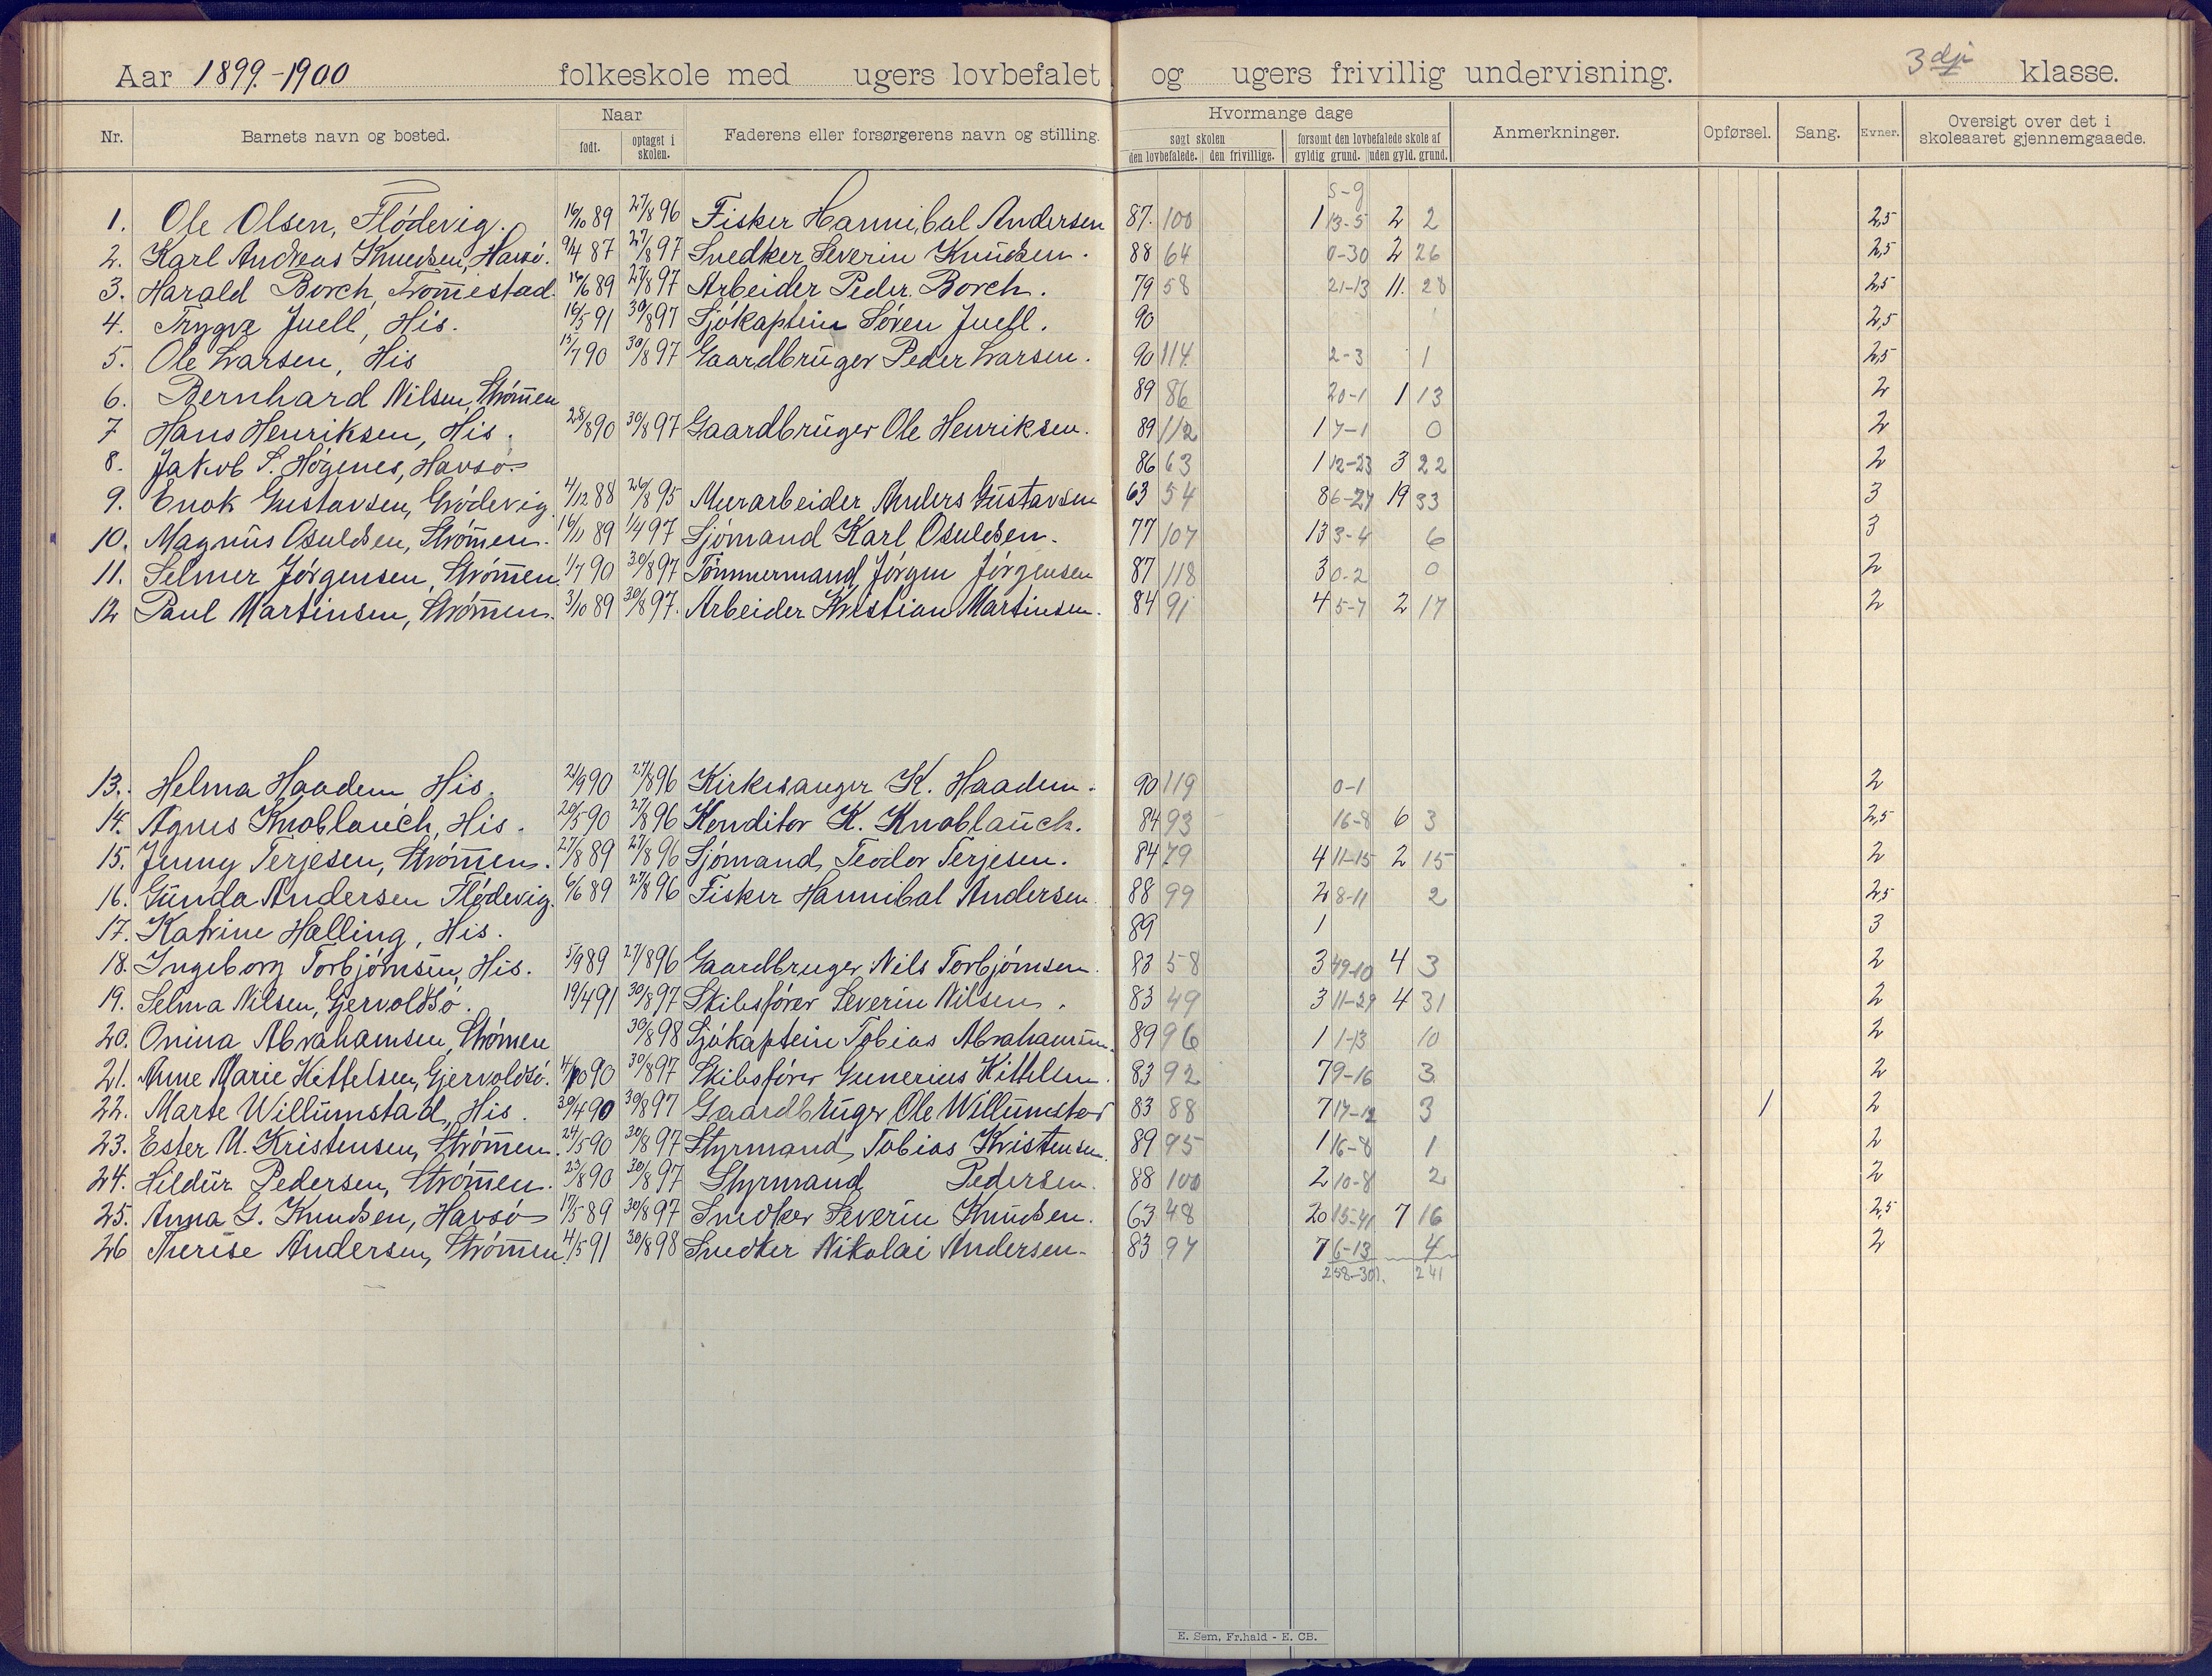 Aar 1899.-1900 folkeskole med ugers lovbefalet og ugers frivillig undervisning. 3dje klasse.
Nr. Barnets navn og bosted. Naar født. optaget i skolen. Faderens eller forsørgerens navn og stilling. Hvormange dage søgt skolen den lovbefalede. den frivillige. forsømt den lovbefalede skole af gyldig grund. uden gyld. grund. Anmerkninger. Opførsel. Sang. Evner. Oversigt over det i skoleaaret gjennemgaaede.
5-9
1. Ole Olsen, Flödevig. 16/10 89 27/8 96 Fisker Hannibal Andersen 87. 100 1 13-5 2 2 2,5
2. Karl Andreas Knudsen, Havsö. 9/4 87 27/8 97 Snedker Severin Knudsen. 88 64 0-30 2 26 2,5
3. Harald Borch, Tromestad. 16/6 89 27/8 97 Arbeider Peder Borch. 79 58 21-13 11. 28 2,5
4. Trygve Juell, His. 16/5 91 30/8 97 Sjökaptein Sören Juell. 90 2,5
5. Ole Larsen, His 15/7 90 30/8 97 Gaardbruger Peder Larsen. 90 114 2-3 1 2,5
6. Bernhard Nilsen, Strömen 89 86 20-1 1 13 2
7 Hans Henriksen, His. 28/8 90 30/8 97 Gaardbruger Ole Henriksen. 89 112 1 7-1 0 2
8. Jakob S. Högenes, Havsö 86 63 1 12-23 3 22 2
9. Enok Gustavsen, Grödevig. 4/12 88 26/8 95 Murarbeider Anders Gustavsen 63 54 8 6-27 19 33 3
10. Magnus Osuldsen, Strömen. 16/11 89 1/4 97 Sjömand Karl Osuldsen. 77 107 13 3-4 6 3
11. Selmer Jörgensen, Strömen. 1/7 90 30/8 97 Tömmermand Jörgen Jörgensen 87 118 3 0-2 0 2
12 Paul Martinsen, Strömen. 3/10 89 30/8 97. Arbeider Kristian Martinsen. 84 91 4 5-7 2 17 2
13. Helma Haadem His. 21/9 90 27/8 96 Kirkesanger K. Haadem. 90 119 0-1 2
14. Agnes Knoblauch, His. 20/5 90 27/8 96 Konditor K. Knoblauch. 84 93 16-8 6 3 2,5
15. Jenny Terjesen, Strömen. 27/8 89 27/8 96 Sjömand, Teodor Terjesen. 84 79 4 11-15 2 15 2
16. Gunda Andersen Flödevig. 6/6 89 27/8 96 Fisker Hannibal Andersen 88 99 2 8-11 2 2,5
17. Katrine Halling, His. 89 1 3
18. Ingeborg Torbjörnsen, His. 5/9 89 27/8 96 Gaardbruger Nils Torbjörnsen. 83 58 3 49-10 4 3 2
19. Selma Nilsen, Gjervoldsö. 19/4 91 30/8 97 Skibsförer Severin Nilsen. 83 49 3 11-29 4 31 2
20. Onina Abrahamsen, Strömen 30/8 98 Sjökaptein Tobias Abrahamsen. 89 96 1 1-13 10 2
21. Anne Marie Kittelsen, Gjervoldsö. 4/10 90 30/8 97 Skibsförer Gunerius Kittelsen. 83 92 7 9-16 3 2
22. Marte Willumstad, His. 30/4 90 30/8 97 Gaardbruger Ole Willumstad 83 88 7 17-12 3 1 2
23. Ester M. Kristensen, Strömen. 24/5 90 30/8 97 Styrmand, Tobias Kristensen. 89 95 1 16-8 1 2
24. Hildur Pedersen, Strömen. 23/8 90 30/8 97 Styrmand Pedersen. 88 100 2 10-8 2 2
25. Anna G. Knudsen, Havsö 17/5 89 30/8 97 Snedker Severin Knudsen. 63 48 20 15-41 7 16 2,5
26 Therise Andersen, Strömen. 4/5 91 30/8 98 Snedker Nikolai Andersen. 83 97 7 6-13 4 2
258-301. 241
E. Sem, Fr.hald - E. CB.